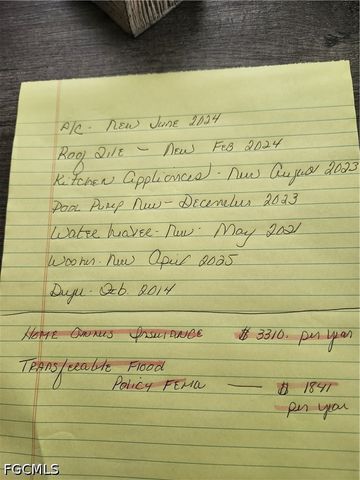 A/C - New June 2024
Roof Tile - New Feb 2024
Kitchen Appliances - New August 2023
Pool Pump New - December 2023
Water New - May 2021
New April 2025
Oct. 2014
Home Insurance $ 3310. per year
Transferable Flood
Policy FEMA — $ 1841
per year
FGCMLS